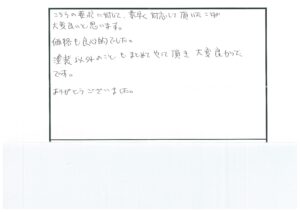 こちらの要望に対して、素早く対応して頂いたことが
大変良いと思います。
価格も良心的でした。
塗装以外のこともまとめてやって頂き、大変良かった
です。
ありがとうございました。